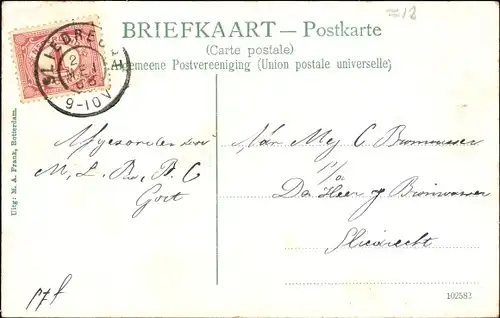 =12
BRIEFKAART — Postkarte
(Carte postale)
Algemeene Postvereeniging (Union postale universelle)
SLIEDRECHT
2
MEI
9-10V
Uitg: M. A. Frank, Rotterdam.
Afgezonden door
M, L. B. C
Goet
Aan Mej C
P/a
De Heer
Sliedrecht
102582